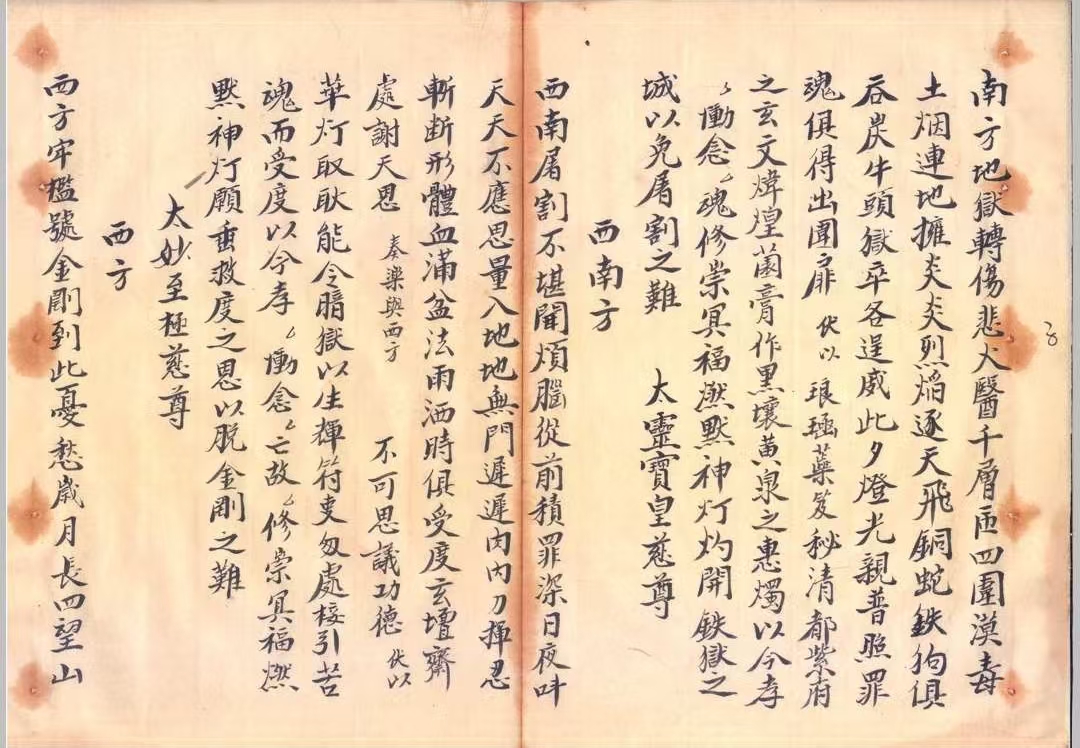 南方地獄轉傷悲犬醫千層匝四圍漠毒
土烟連地擁炎炎烈焰逐天飛銅蛇鉄狗俱
吞炭牛頭獄卒各逞威此夕燈光親普照罪
魂俱得出圍扉 伏以 琅函蕋笈秘清都紫府
之玄文煒煌蘭膏作黑壤黃泉之惠燭以今孝
〻慟念〻魂修崇冥福燃點神灯灼開鉄獄之
城以免屠割之難 太靈寶皇慈尊
西南方
西南屠割不堪聞煩腦從前積罪深日夜呌
天天不應思量入地地無門遲遲肉內刀揮忍
斬断形體血滿盆法雨洒時俱受度玄壇齋
處謝天恩 奏樂與西方 不可思議功德 伏以
華灯取耿能令暗獄以生輝符吏匆處接引苦
魂而受度以今孝〻慟念〻亡故〻修崇冥福燃
點神灯願垂救度之恩以脱金剛之難
太妙至極慈尊
西方
西方牢檻號金剛到此憂愁歲月長四望山